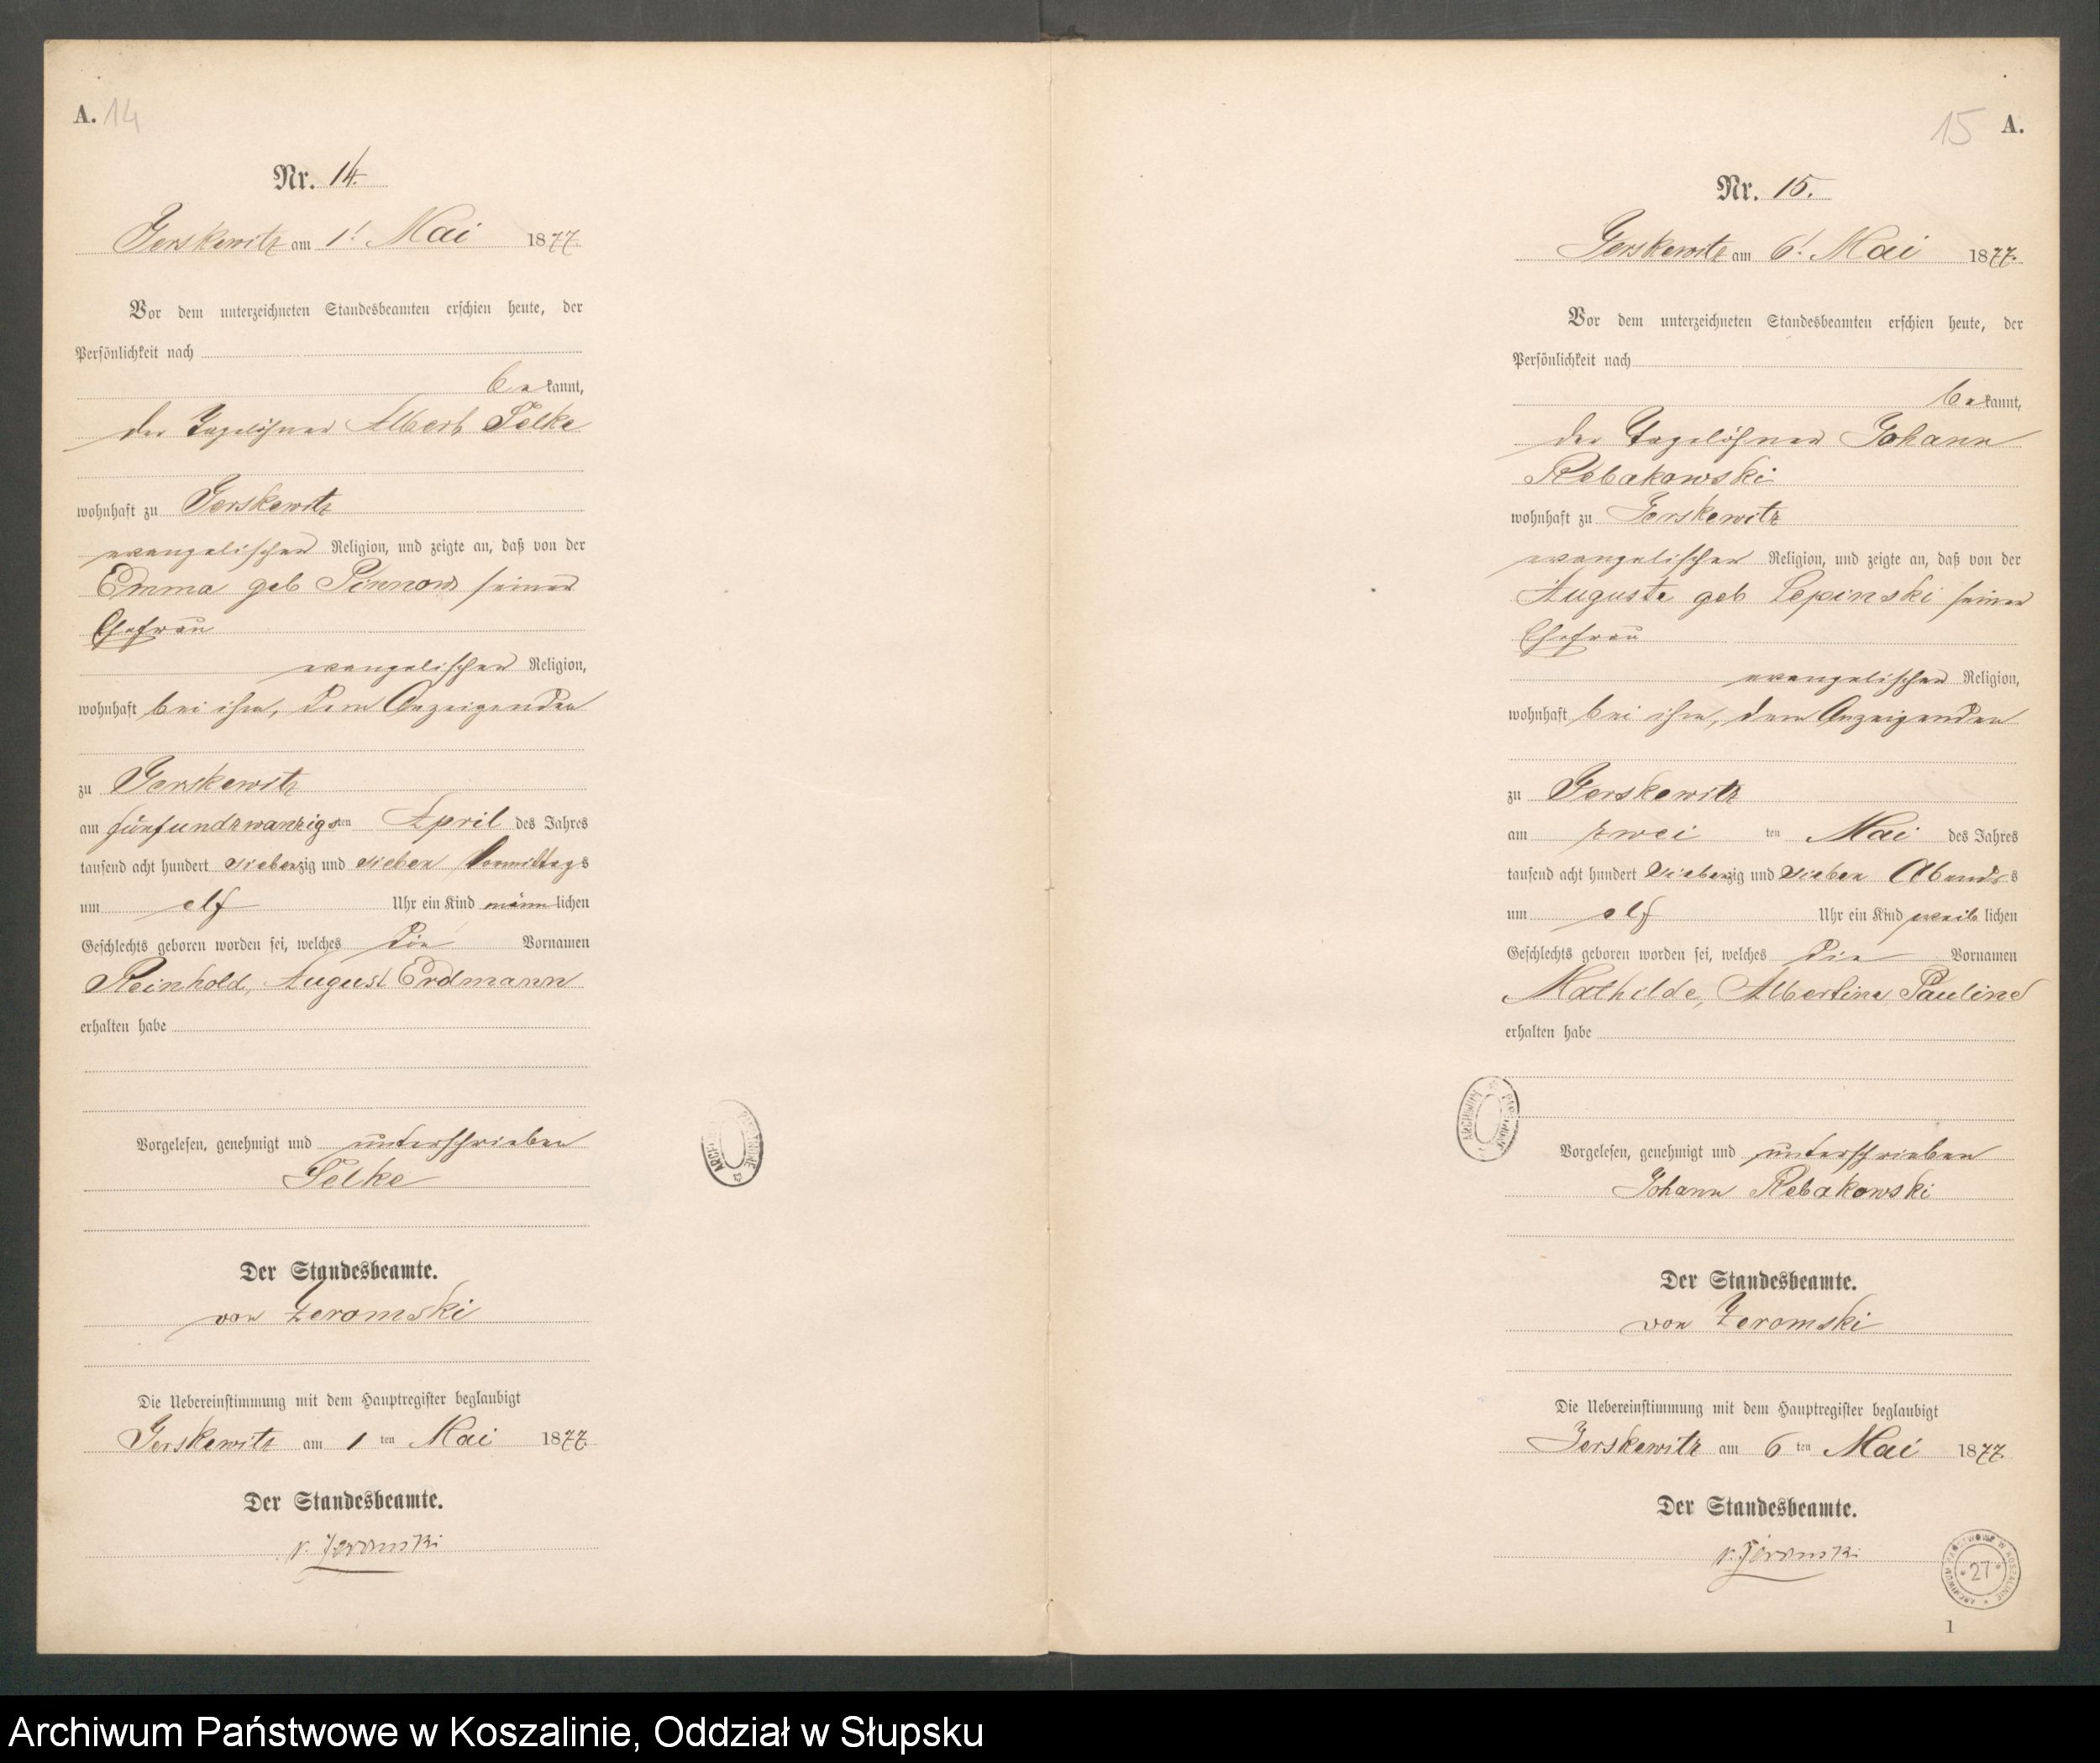 A. 14
Nr. 14.
Jerskewitz am 1! Mai 1877.
Vor dem unterzeichneten Standesbeamten erschien heute, der
Persönlichkeit nach
be kannt,
der Tagelöhner Albert Selke
wohnhaft zu Jerskewitz
evangelischer Religion, und zeigte an, daß von der
Emma geb Pinnow seiner
Ehefrau
evangelischer Religion,
wohnhaft bei ihm, dem Anzeigenden
zu Jerskewitz
am fünfundzwanzigsten April des Jahres
tausend acht hundert siebenzig und sieben Vormittags
um elf Uhr ein Kind männ lichen
Geschlechts geboren worden sei, welches die Vornamen
Reinhold, August Erdmann
erhalten habe
Vorgelesen, genehmigt und unterschrieben
Selke
Der Standesbeamte.
von Zeromski
Die Uebereinstimmung mit dem Hauptregister beglaubigt
Jerskewitz am 1 ten Mai 1877.
Der Standesbeamte.
v. Zeromski
15 A.
Nr. 15.
Jerskewitz am 6! Mai 1877.
Vor dem unterzeichneten Standesbeamten erschien heute, der
Persönlichkeit nach
be kannt,
der Tagelöhner Johann
Rebakowski
wohnhaft zu Jerskewitz
evangelischer Religion, und zeigte an, daß von der
Auguste geb Lepinski seiner
Ehefrau
evangelischer Religion,
wohnhaft bei ihm, dem Anzeigenden
zu Jerskewitz
am zwei ten Mai des Jahres
tausend acht hundert siebenzig und sieben Abends s
um elf Uhr ein Kind weib lichen
Geschlechts geboren worden sei, welches die Vornamen
Mathilde, Albertine Pauline
erhalten habe
Vorgelesen, genehmigt und unterschrieben
Johann Rebakowski
Der Standesbeamte.
von Zeromski
Die Uebereinstimmung mit dem Hauptregister beglaubigt
Jerskewitz am 6 ten Mai 1877.
Der Standesbeamte.
v. Zeromski
ARCHIWUM PAŃSTWOWE W KOSZALINIE
* 27 *
1
Archiwum Państwowe w Koszalinie, Oddział w Słupsku